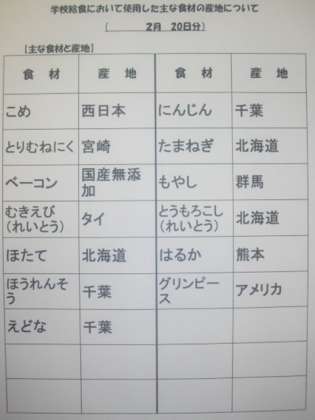 学校給食において使用した主な食材の産地について
[ 2月 20日分]
[主な食材と産地]
食 材 産 地 食 材 産 地
こめ 西日本 にんじん 千葉
とりむねにく 宮崎 たまねぎ 北海道
ベーコン 国産無添加 もやし 群馬
むきえび(れいとう) タイ とうもろこし(れいとう) 北海道
ほたて 北海道 はるか 熊本
ほうれんそう 千葉 グリンピース アメリカ
えどな 千葉